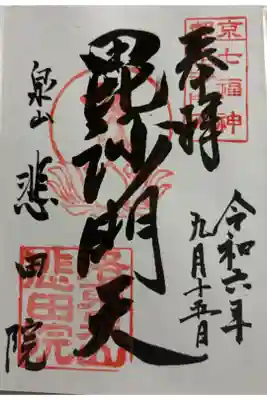 京七福神
奉拝
令和六年
九月十五日
毘沙門天
泉山 悲田院
悲田院